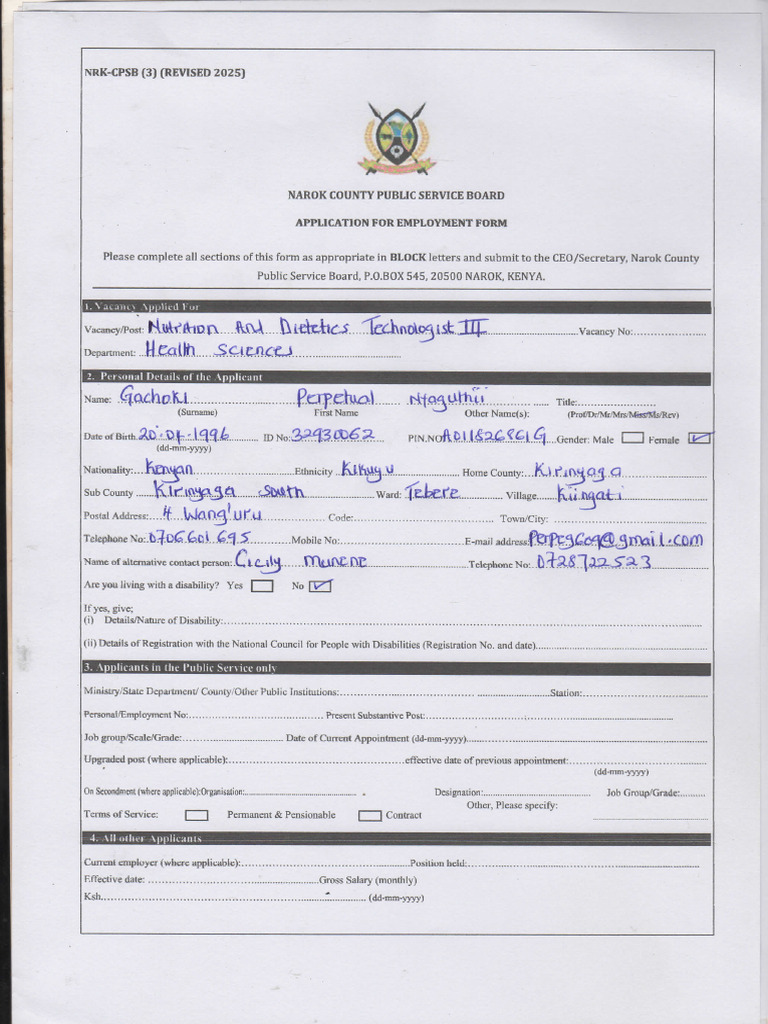 NRK-CPSB (3) (REVISED 2025)
NAROK COUNTY PUBLIC SERVICE BOARD
APPLICATION FOR EMPLOYMENT FORM
Please complete all sections of this form as appropriate in BLOCK letters and submit to the CEO/Secretary, Narok County
Public Service Board, P.O.BOX 545, 20500 NAROK, KENYA.
1. Vacancy Applied For
Vacancy/Post: Nutrition And Dietetics Technologist III Vacancy No:
Department: Health Sciences
2. Personal Details of the Applicant
Name: Gachoki Perpetual Nyaguthii Title:
(Surname) First Name Other Name(s): (Prof/Dr/Mr/Mrs/Miss/Ms/Rev)
Date of Birth 20-04-1996 ID No: 32930062 PIN.NO A011826861G Gender: Male Female
(dd-mm-yyyy)
Nationality: Kenyan Ethnicity Kikuyu Home County: Kirinyaga
Sub County Kirinyaga South Ward: Tebere Village Kiingati
Postal Address: 4 Wang'uru Code: Town/City:
Telephone No: 0706601695 Mobile No: E-mail address: perpeg609@gmail.com
Name of alternative contact person: Cicily Munene Telephone No: 0728722523
Are you living with a disability? Yes No
If yes, give;
(i) Details/Nature of Disability:
(ii) Details of Registration with the National Council for People with Disabilities (Registration No. and date)
3. Applicants in the Public Service only
Ministry/State Department/ County/Other Public Institutions: Station:
Personal/Employment No: Present Substantive Post:
Job group/Scale/Grade: Date of Current Appointment (dd-mm-yyyy)
Upgraded post (where applicable): effective date of previous appointment:
(dd-mm-yyyy)
On Secondment (where applicable):Organisation: Designation: Job Group/Grade:
Other, Please specify:
Terms of Service: Permanent & Pensionable Contract
4. All other Applicants
Current employer (where applicable): Position held:
Effective date: Gross Salary (monthly)
Ksh. (dd-mm-yyyy)